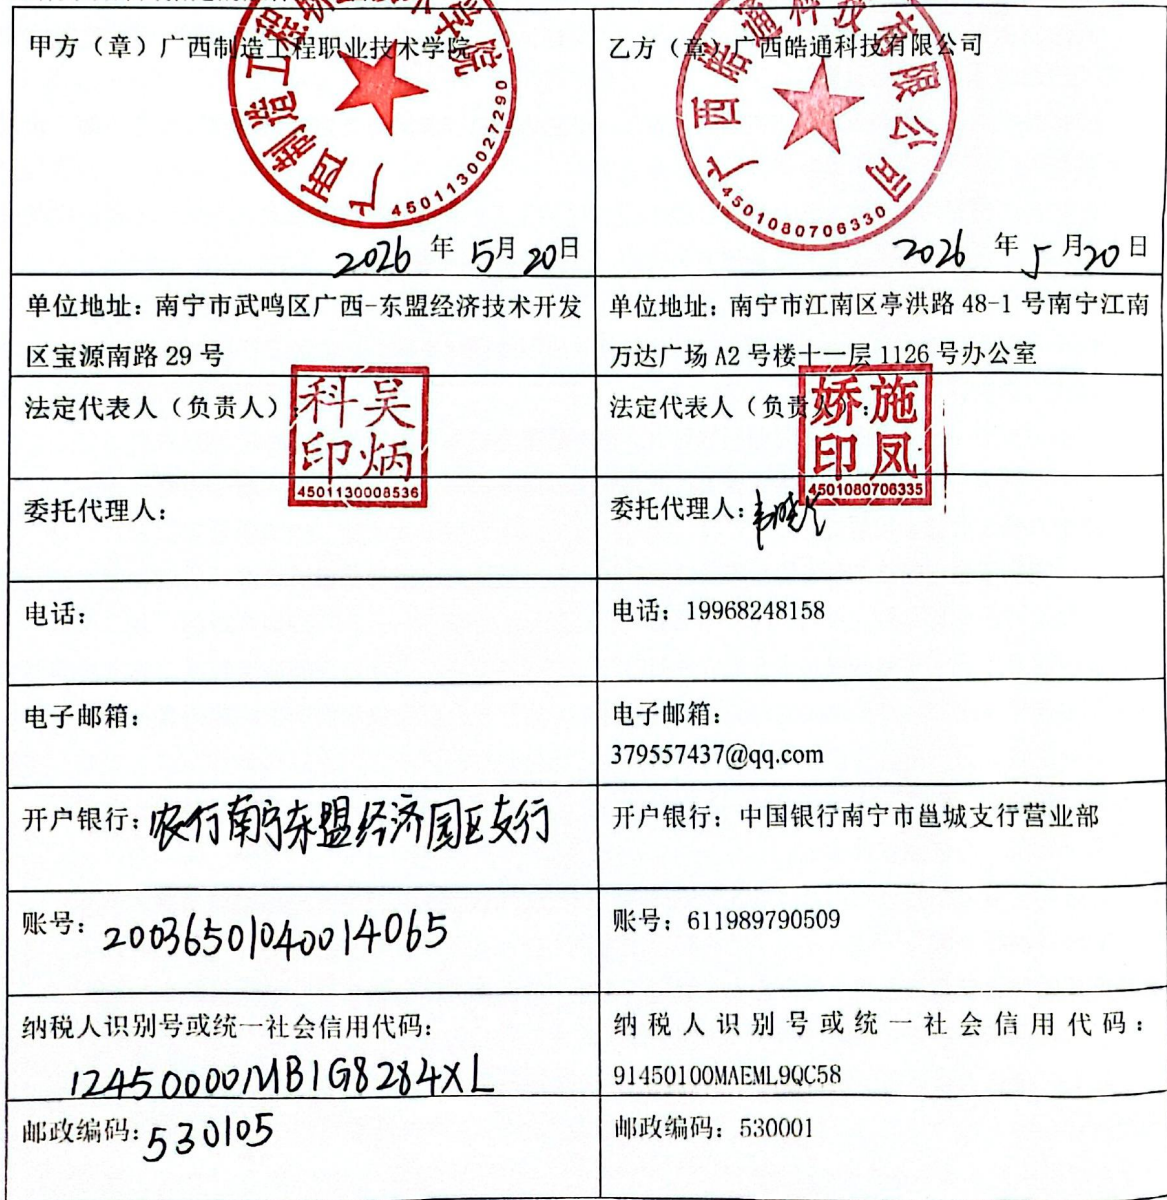 甲方（章）广西制造工程职业技术学院
广西制造工程职业技术学院
4501130027290
2026 年 5月20日
乙方（章）广西皓通科技有限公司
广西皓通科技有限公司
4501080706330
2026 年 5 月20日
单位地址：南宁市武鸣区广西-东盟经济技术开发
区宝源南路 29 号
单位地址：南宁市江南区亭洪路 48-1 号南宁江南
万达广场 A2 号楼十一层 1126 号办公室
法定代表人（负责人）
吴炳科印
4501130008536
法定代表人（负责人）：
施凤娇印
4501080706335
委托代理人：
委托代理人：
电话：
电话：19968248158
电子邮箱：
电子邮箱：
379557437@qq.com
开户银行：农行南宁东盟经济园区支行
开户银行：中国银行南宁市邕城支行营业部
账号：20036501040014065
账号：611989790509
纳税人识别号或统一社会信用代码：
12450000MB1G8284XL
纳税人识别号或统一社会信用代码：
91450100MAEML9QC58
邮政编码：530105
邮政编码：530001